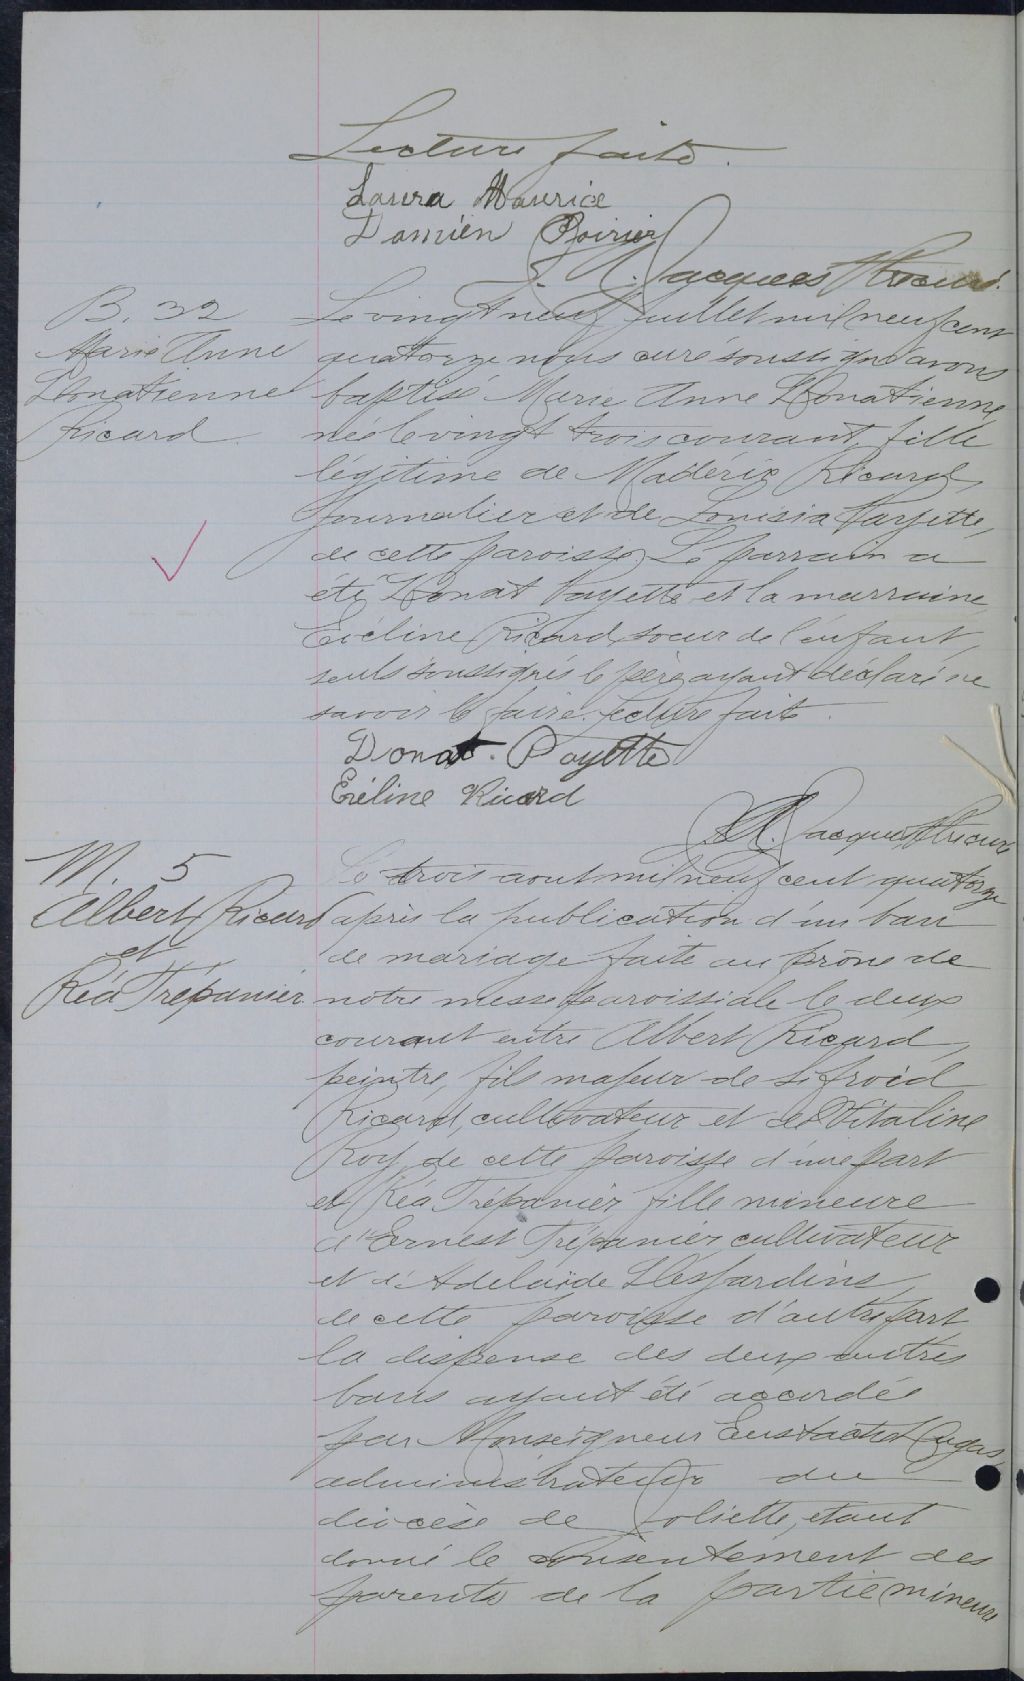 Lecture faite.
Laura Maurice
Damien Poirier
J. A. Jacques Ptre curé.
B. 32
Marie Anne
Donatienne
Ricard
Le vingt neuf juillet mil neuf cent
quatorze nous curé soussigné avons
baptisé Marie Anne Donatienne,
née le vingt trois courant, fille
légitime de Madérix Ricard,
journalier et de Louisia Payette,
de cette paroisse. Le parrain a
été Donat Payette et la marraine
Evéline Ricard soeur de l'enfant,
seuls soussignés le père ayant déclaré ne
savoir le faire. Lecture faite.
Donat. Payette
Evéline Ricard
J. A. Jacques Ptre curé
M. 5
Albert Ricard
et
Réa Trépanier
Le trois aout mil neuf cent quatorze
après la publication d'un ban
de mariage faite au prône de
notre messe paroissiale le deux
courant entre Albert Ricard,
peintre, fils majeur de Sifroid
Ricard, cultivateur et de Vitaline
Roy de cette paroisse d'une part
et Réa Trépanier fille mineure
d'Ernest Trépanier, cultivateur
et d'Adelaïde Desjardins,
de cette paroisse d'autre part
la dispense des deux autres
bans ayant été accordée
par Monseigneur Eustache Dugas,
administrateur du
diocèse de Joliette, etant
donné le consentement des
parents de la partie mineure